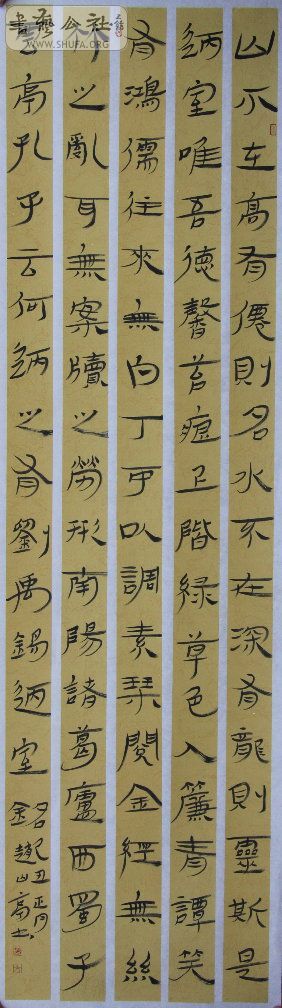 山不在高有僊則名水不在深有龍則靈斯是
陋室唯吾徳馨苔痕上階緑草色入簾青譚笑
有鴻儒往來無白丁可以調素琴閱金經無絲
竹之亂耳無案牘之勞形南陽諸葛廬西蜀子
云亭孔子云何陋之有劉禹錫陋室銘
己丑正月
書藝公社
WWW.SHUFA.ORG